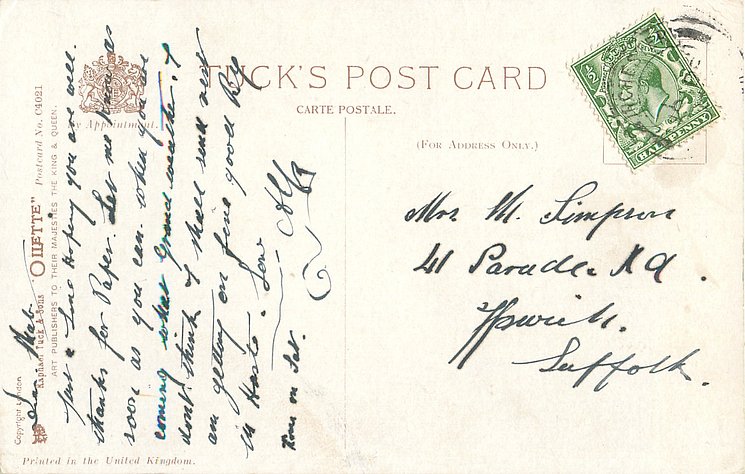 TUCK'S POST CARD
CARTE POSTALE.
(FOR ADDRESS ONLY.)
By Appointment.
½ ½
HALF PENNY
Mrs. M. Simpson
41 Parade Rd.
Ipswich.
Suffolk.
Dear
Just a Line Hoping you are well.
thanks for Paper. Let me know as
soon as you can when you are
coming what grand weather. I
dont think I shall send next
am getting on fine good Bye
in Haste. Love
on Sat.
Copyright London
Raphael Tuck & Sons "OILETTE" Postcard No. C4021
ART PUBLISHERS TO THEIR MAJESTIES THE KING & QUEEN.
Printed in the United Kingdom.